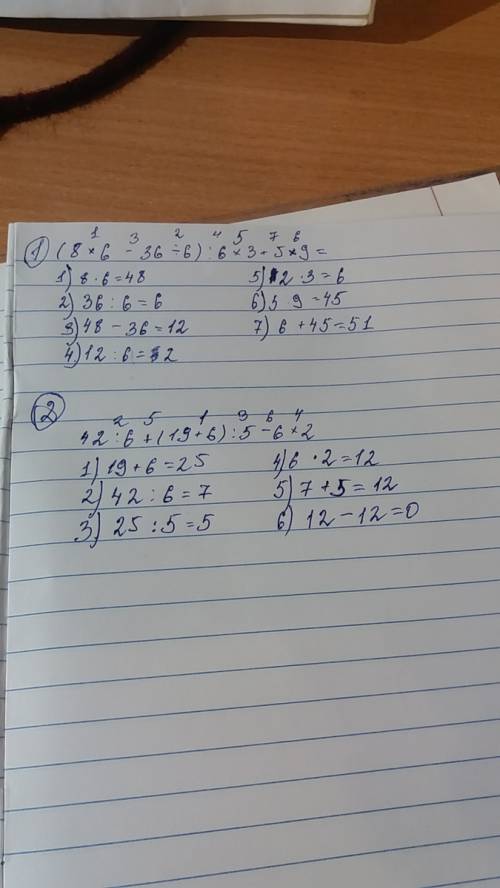 1
1 3 2 4 5 7 6
(8 × 6 - 36 ÷ 6) : 6 × 3 + 5 × 9 =
1) 8 · 6 = 48
2) 36 : 6 = 6
3) 48 - 36 = 12
4) 12 : 6 = 2
5) 2 · 3 = 6
6) 5 · 9 = 45
7) 6 + 45 = 51
2
2 5 1 3 6 4
42 : 6 + (19 + 6) : 5 - 6 × 2
1) 19 + 6 = 25
2) 42 : 6 = 7
3) 25 : 5 = 5
4) 6 · 2 = 12
5) 7 + 5 = 12
6) 12 - 12 = 0